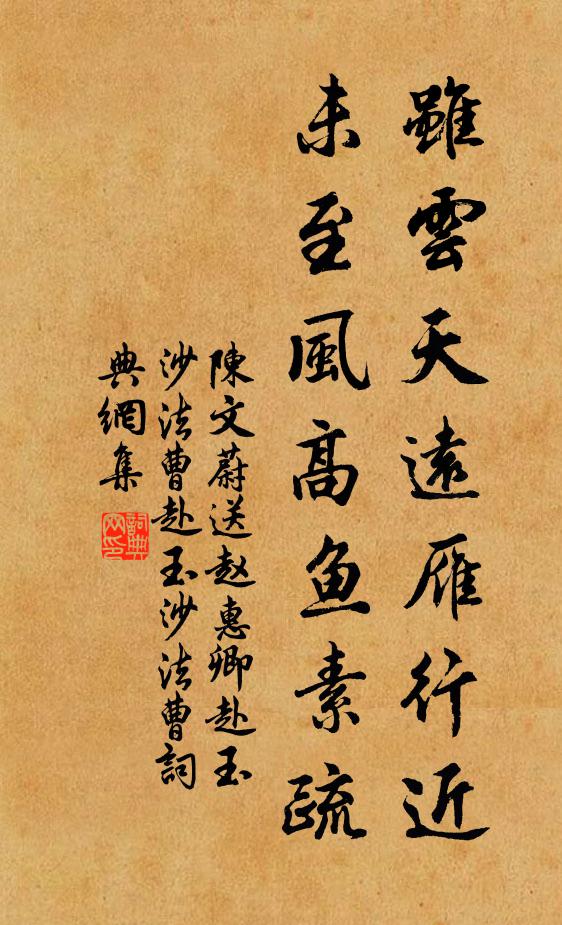 雖雲天遠雁行近
未至風高魚素疏
陳文蔚送赵惠卿赴玉
沙法曹赴玉沙法曹詞
典網集
詞典
网印